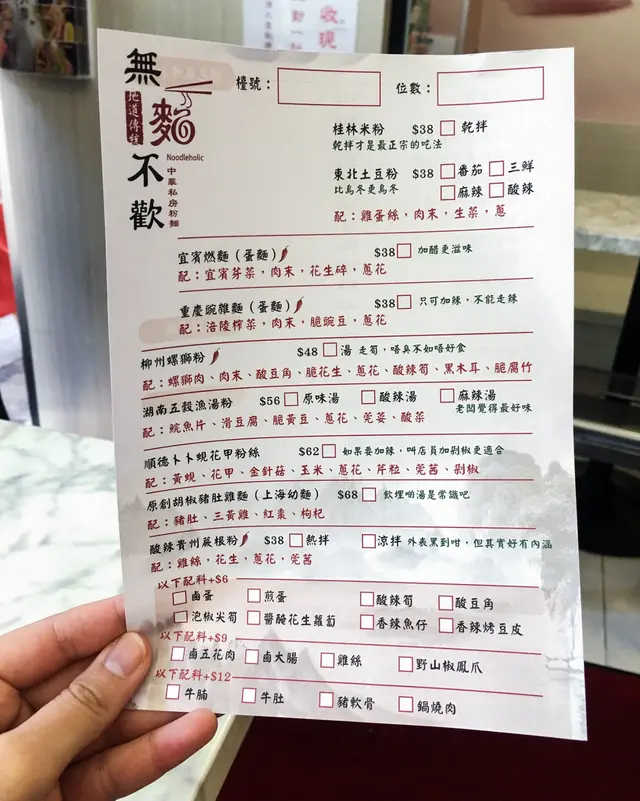 收現
無麵不歡
地道傳統
Noodleholic
中華私房粉麵
檯號： 位數：
桂林米粉 $38 乾拌
乾拌才是最正宗的吃法
東北土豆粉 $38 番茄 三鮮
比烏冬更烏冬 麻辣 酸辣
配：雞蛋絲，肉末，生菜，蔥
宜賓燃麵（蛋麵） $38 加醋更滋味
配：宜賓芽菜，肉末，花生碎，蔥花
重慶豌雜麵（蛋麵） $38 只可加辣，不能走辣
配：涪陵榨菜，肉末，脆豌豆，蔥花
柳州螺獅粉 $48 湯 走筍，唔臭不如唔好食
配：螺獅肉、肉末、酸豆角、脆花生、蔥花、酸辣筍、黑木耳、脆腐竹
湖南五穀漁湯粉 $56 原味湯 酸辣湯 麻辣湯
老闆覺得最好味
配：鯇魚片、滑豆腐、脆黃豆、蔥花、莞荽、酸菜
順德卜卜蜆花甲粉絲 $62 如果要加辣，叫店員加剁椒更適合
配：黃蜆、花甲、金針菇、玉米、蔥花、芹粒、莞茜、剁椒
原創胡椒豬肚雞麵（上海幼麵） $68 飲埋啲湯是常識吧
配：豬肚、三黃雞、紅棗、枸杞
酸辣貴州蕨根粉 $38 熱拌 涼拌 外表黑到咁，但其實好有內涵
配：雞絲，花生，蔥花，莞茜
以下配料+$6
鹵蛋 煎蛋 酸辣筍 酸豆角
泡椒尖筍 醬醃花生蘿蔔 香辣魚仔 香辣烤豆皮
以下配料+$9
鹵五花肉 鹵大腸 雞絲 野山椒鳳爪
以下配料+$12
牛腩 牛肚 豬軟骨 鍋燒肉